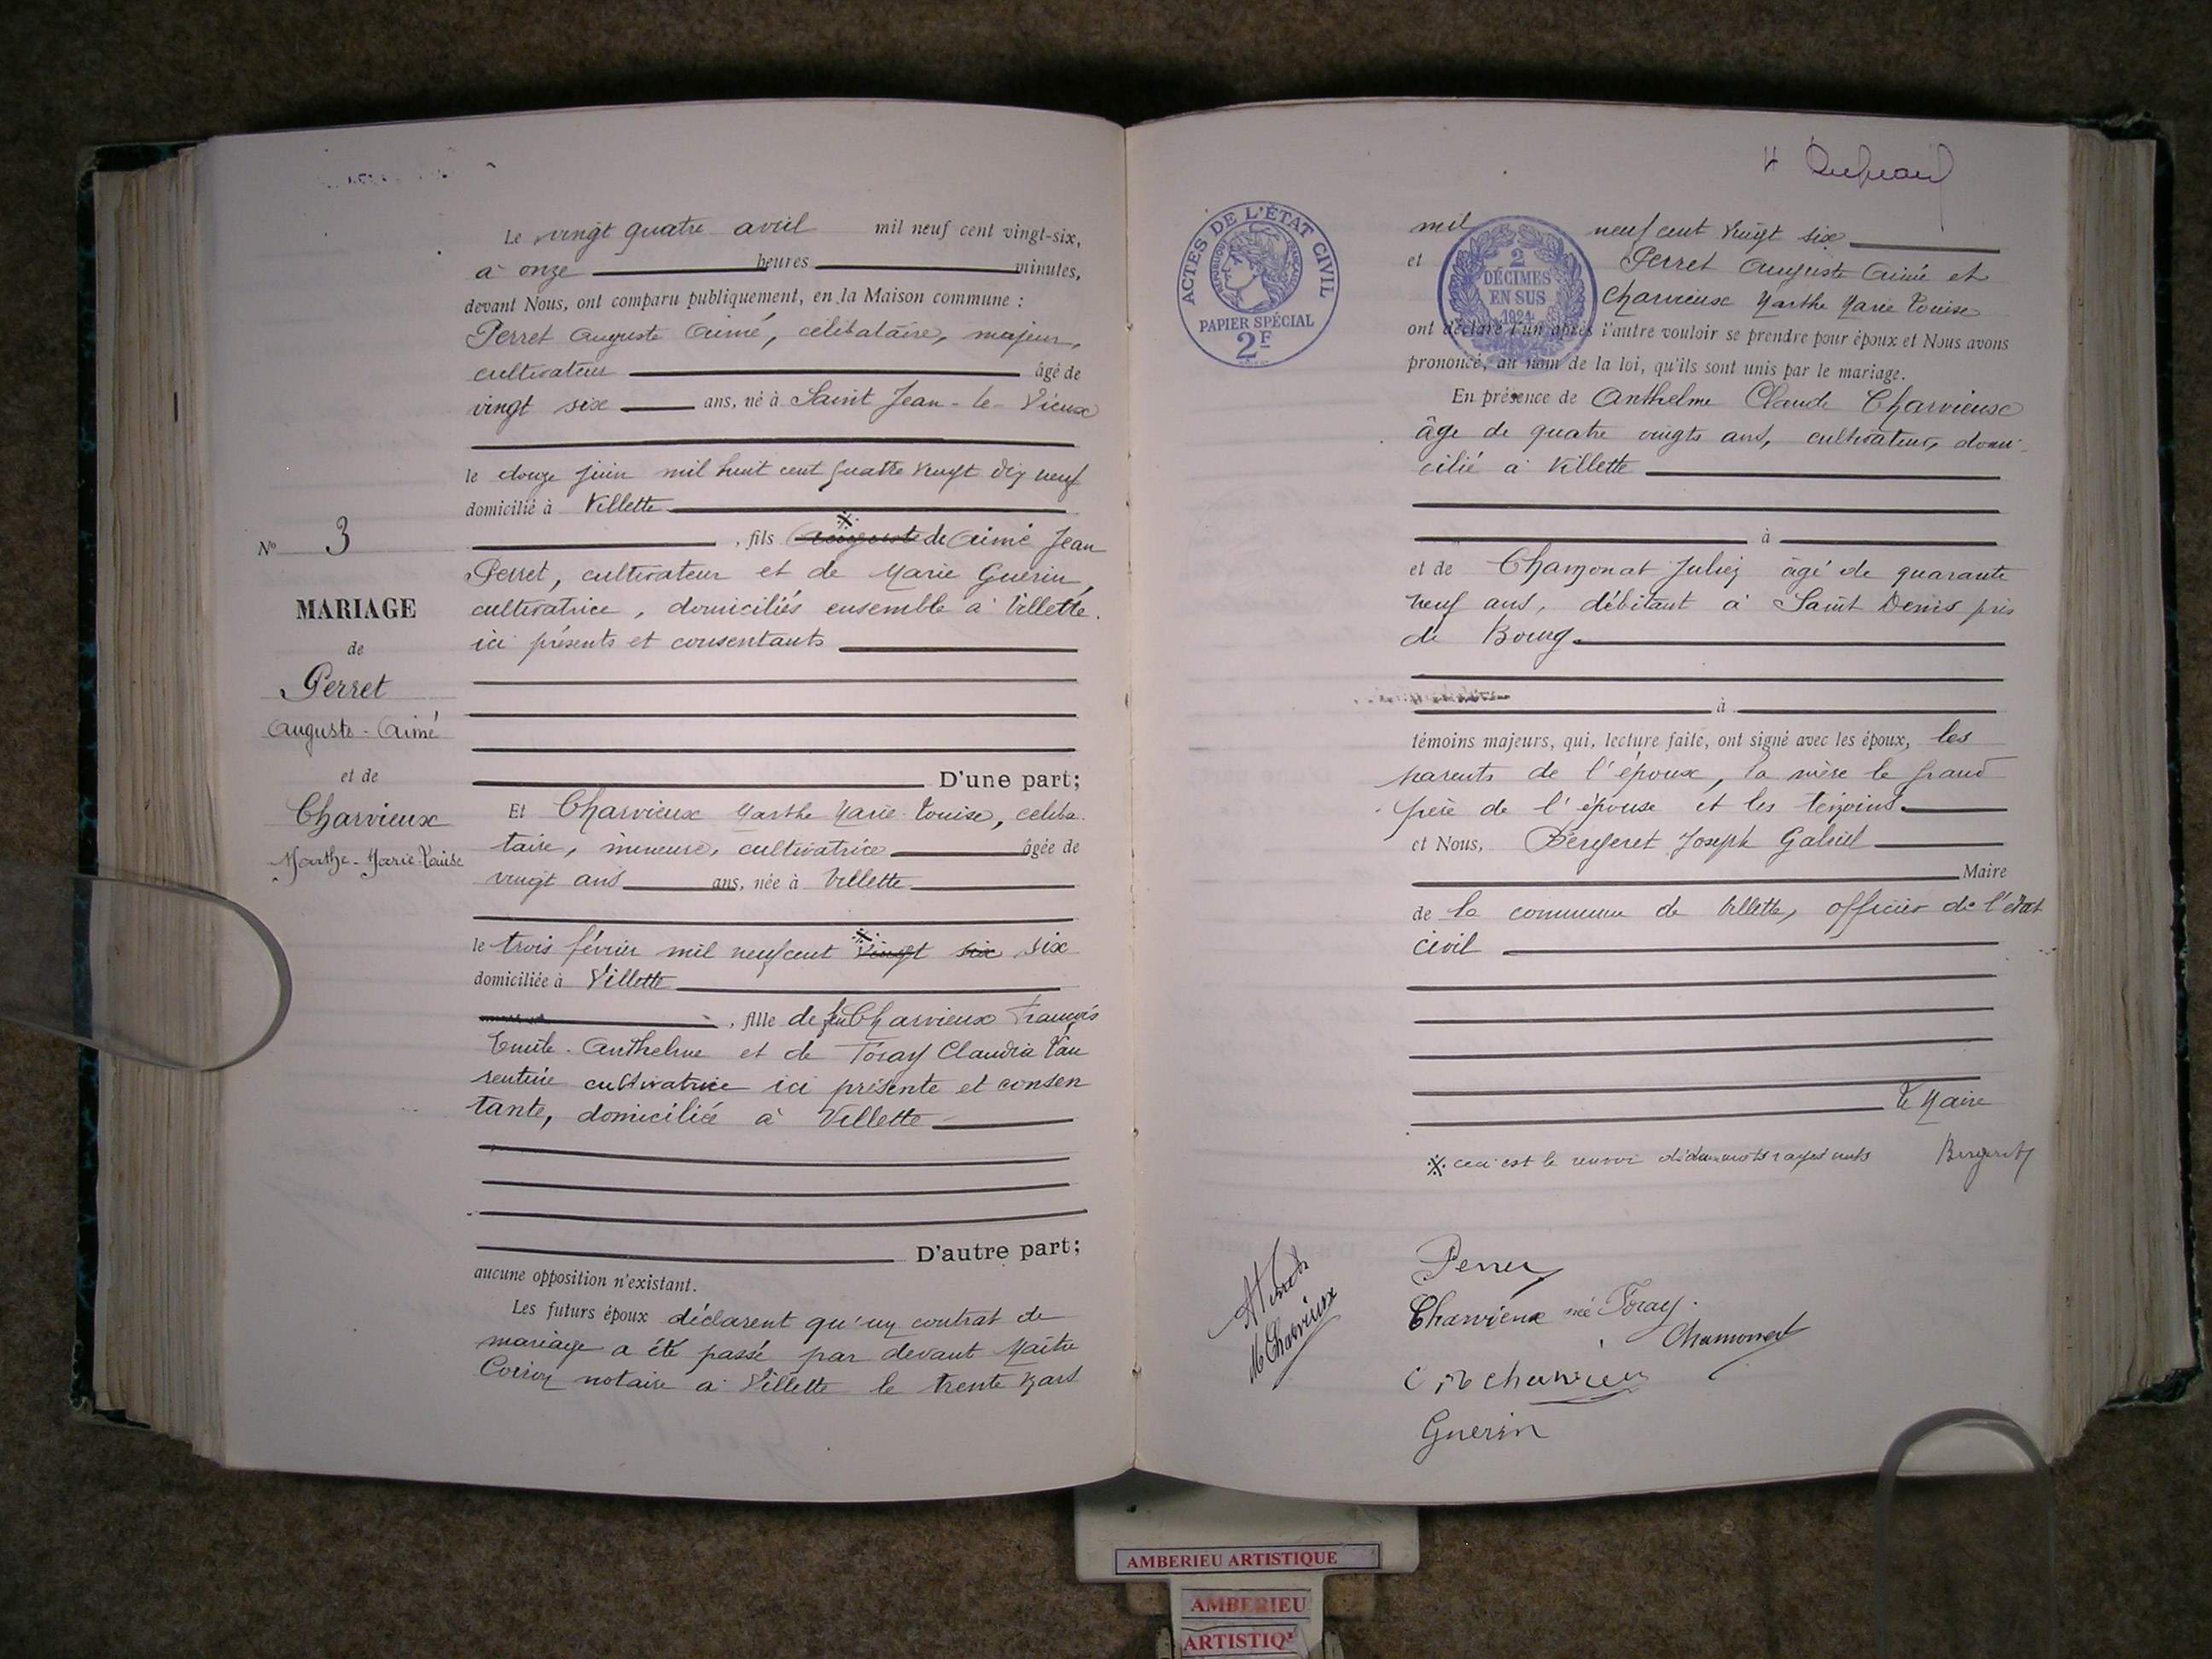 Le vingt quatre avril mil neuf cent vingt-six,
à onze heures minutes,
devant Nous, ont comparu publiquement, en la Maison commune :
Perret Auguste Aimé, célibataire, majeur,
cultivateur âgé de
vingt six ans, né à Saint Jean-le-Vieux
le douze juin mil huit cent quatre vingt dix neuf
domicilié à Villette
, fils Auguste de Aimé Jean
Perret, cultivateur et de Marie Guérin,
cultivatrice, domiciliés ensemble à Villette.
ici présents et consentants
D'une part;
Et Charvieux Marthe Marie Louise, céliba
taire, mineure, cultivatrice âgée de
vingt ans ans, née à Villette
le trois février mil neuf cent vingt six six
domiciliée à Villette
, fille de feu Charvieux François
Emile Anthelme et de Toray Claudia Lau
rentine cultivatrice ici présente et consen
tante, domiciliée à Villette
D'autre part;
aucune opposition n'existant.
Les futurs époux déclarent qu'un contrat de
mariage a été passé par devant Maître
notaire à Villette le trente Mars
No 3
MARIAGE
de
Perret
Auguste-Aimé
et de
Charvieux
Marthe-Marie-Louise
ACTES DE L'ÉTAT CIVIL
RÉPUBLIQUE FRANÇAISE
PAPIER SPÉCIAL
2F
2
DÉCIMES
EN SUS
1924
mil neuf cent vingt six
et Perret Auguste Aimé et
Charvieux Marthe Marie Louise
ont déclaré l'un après l'autre vouloir se prendre pour époux et Nous avons
prononcé, au nom de la loi, qu'ils sont unis par le mariage.
En présence de Anthelme Claude Charvieux
âge de quatre vingts ans, cultivateur, domi-
cilié à Villette
à
et de Chamonat Julien âgé de quarante
neuf ans, débitant à Saint Denis près
de Bourg
à
témoins majeurs, qui, lecture faite, ont signé avec les époux, les
parents de l'époux, la mère le grand
père de l'épouse et les témoins
et Nous, Bergeret Joseph Gabriel
Maire
de la commune de Villette, officier de l'état
civil
Le Maire
ceci est le renvoi de deux mots rayés nuls
Bergeret
Perret
M Charvieux
Charvieux née Toray
Chamonat
Guerin
AMBERIEU ARTISTIQUE
AMBERIEU
ARTISTIQ